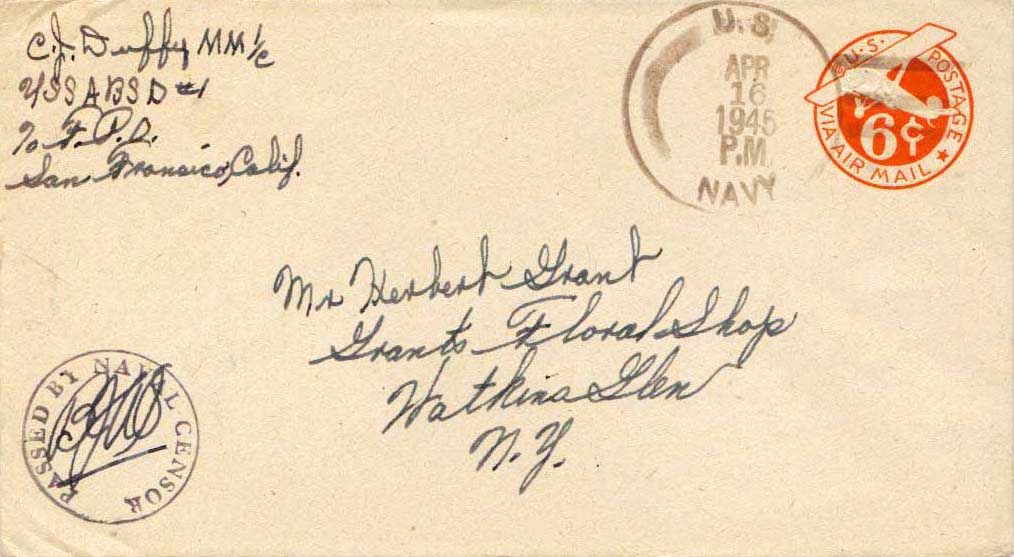 C.J. Duffy MM 1/c
USS ABSD #1
℅ F.P.O.
San Fransico, Calif.
U.S.
APR
16
1945
P.M.
NAVY
U.S. POSTAGE
6¢
VIA AIR MAIL
Mr Herbert Grant
Grants Floral Shop
Watkins Glen
N.Y.
PASSED BY NAVAL CENSOR